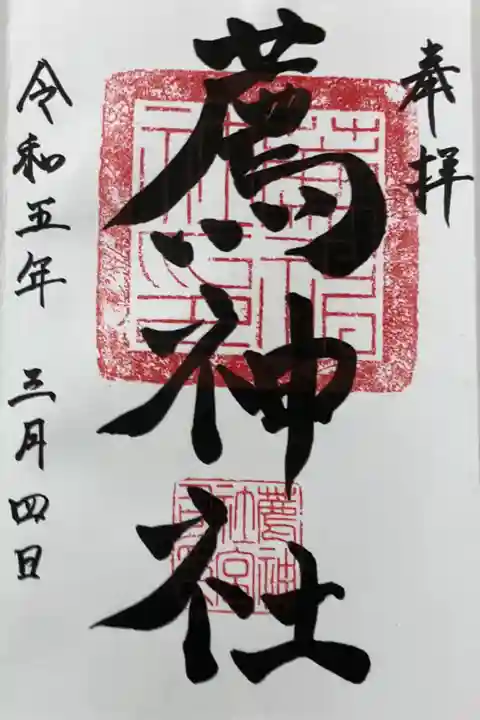 奉拝
薦神社
令和五年 三月四日